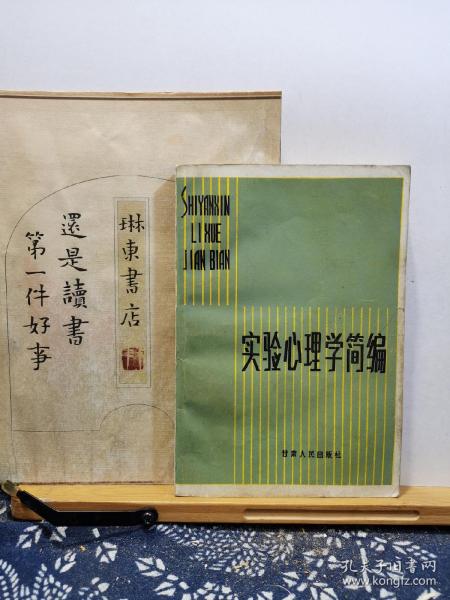 琳東書店
還是讀書
第一件好事
SHIYANXIN
LI XUE
JIAN BIAN
实验心理学简编
甘肃人民出版社
孔夫子旧书网
book.kongfz.com